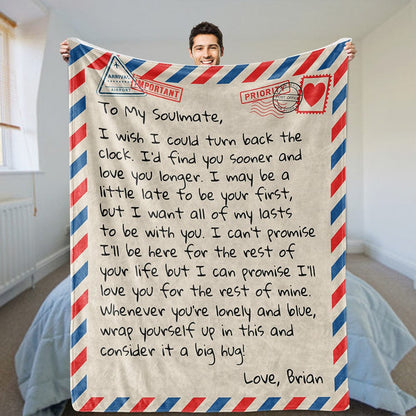 ARRIVAL
AIRPORT
IMPORTANT
PRIORITY
To My Soulmate,
I wish I could turn back the
clock. I'd find you sooner and
love you longer. I may be a
little late to be your first,
but I want all of my lasts
to be with you. I can't promise
I'll be here for the rest of
your life but I can promise I'll
love you for the rest of mine.
Whenever you're lonely and blue,
wrap yourself up in this and
consider it a big hug!
Love, Brian